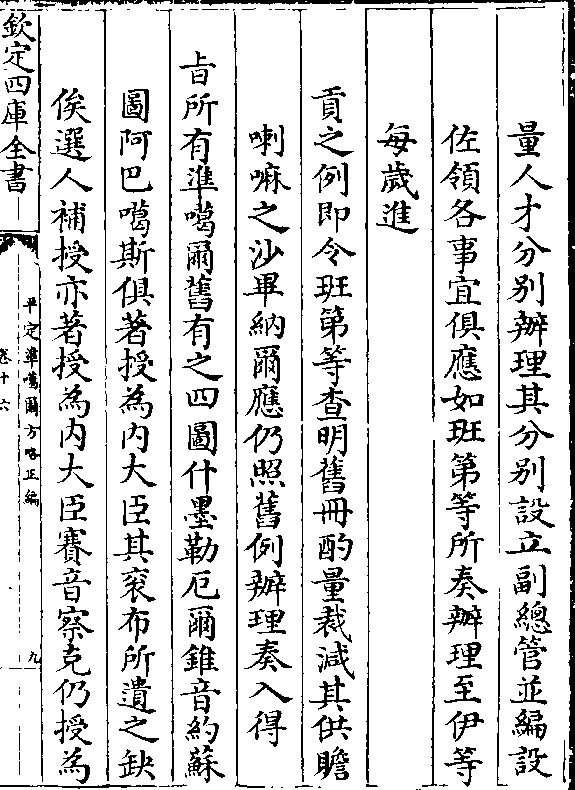 量人才分别辦理其分别設立副總管並編設
佐領各事宜俱應如班第等所奏辦理至伊等
每歲進
貢之例即令班第等查明舊冊酌量裁減其供贍
喇嘛之沙畢納爾應仍照舊例辦理奏入得
㫖所有準噶爾舊有之四圖什墨勒厄爾錐音約蘇
圖阿巴噶斯俱著授為内大臣其衮布所遺之缺
俟選人補授亦著授為内大臣賽音察克仍授為
欽定四庫全書
平定準噶爾方略正編
卷十六
九